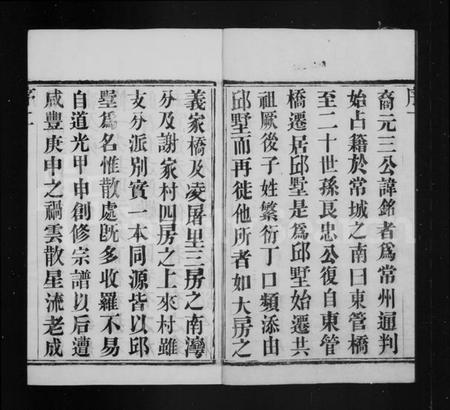 裔元三公諱銘者爲常州通判
始占籍於常城之南曰東管橋
至二十世孫良忠公復自東管
橋遷居邱墅是爲邱墅始遷共
祖厥後子姓繁衍丁口頻添由
邱墅而再徙他所者如大房之
義家橋及凌屠里三房之南灣
分及謝家村四房之上來村雖
支分派別實一本同源皆以邱
墅爲名惟散處既多收羅不易
自道光甲申創修宗譜以后遭
咸豐庚申之禍雲散星流老成